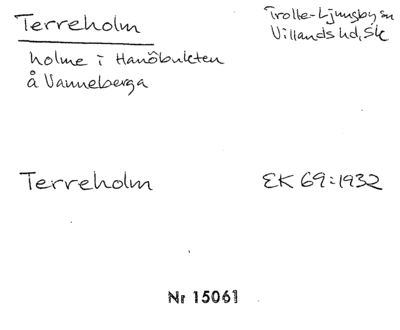 Terreholm
Trolle-Ljungby sn
Villands hd, Sk
holme i Hanöbukten
å Vanneberga
Terreholm
EK 69:1932
Nr 15061